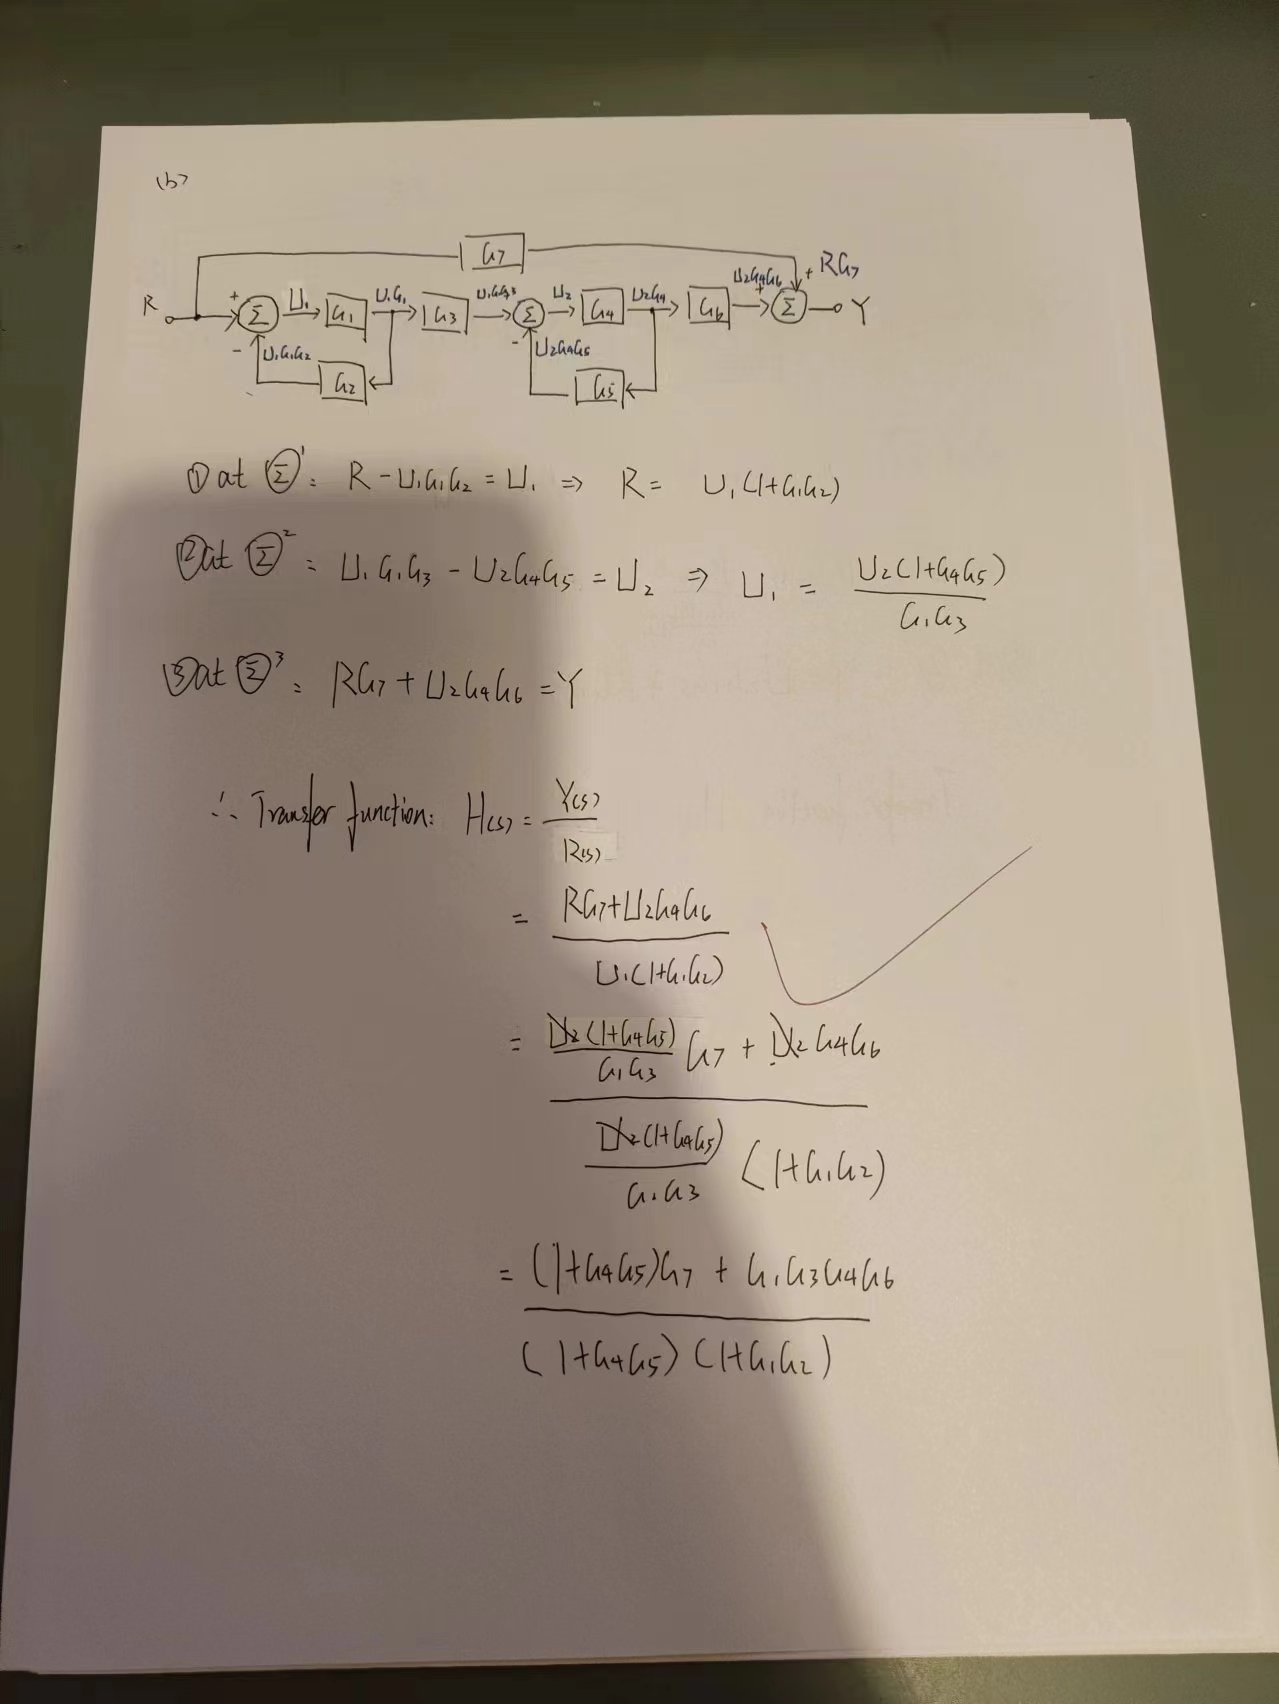 (b)
G7
+ RG7
R + Σ U1 G1 U1G1 G3 U1G1G3 Σ U2 G4 U2G4 G6 U2G4G6 + Σ Y
- U1G1G2 - U2G4G5
G2 G5
① at Σ¹: R - U1G1G2 = U1 ⇒ R = U1(1+G1G2)
② at Σ²: U1G1G3 - U2G4G5 = U2 ⇒ U1 = U2(1+G4G5) / G1G3
③ at Σ³: RG7 + U2G4G6 = Y
∴ Transfer function: H(s) = Y(s) / R(s)
= RG7+U2G4G6 / U1(1+G1G2)
= U2(1+G4G5) / G1G3 G7 + U2G4G6
U2(1+G4G5) / G1G3 (1+G1G2)
= (1+G4G5)G7 + G1G3G4G6
(1+G4G5)(1+G1G2)